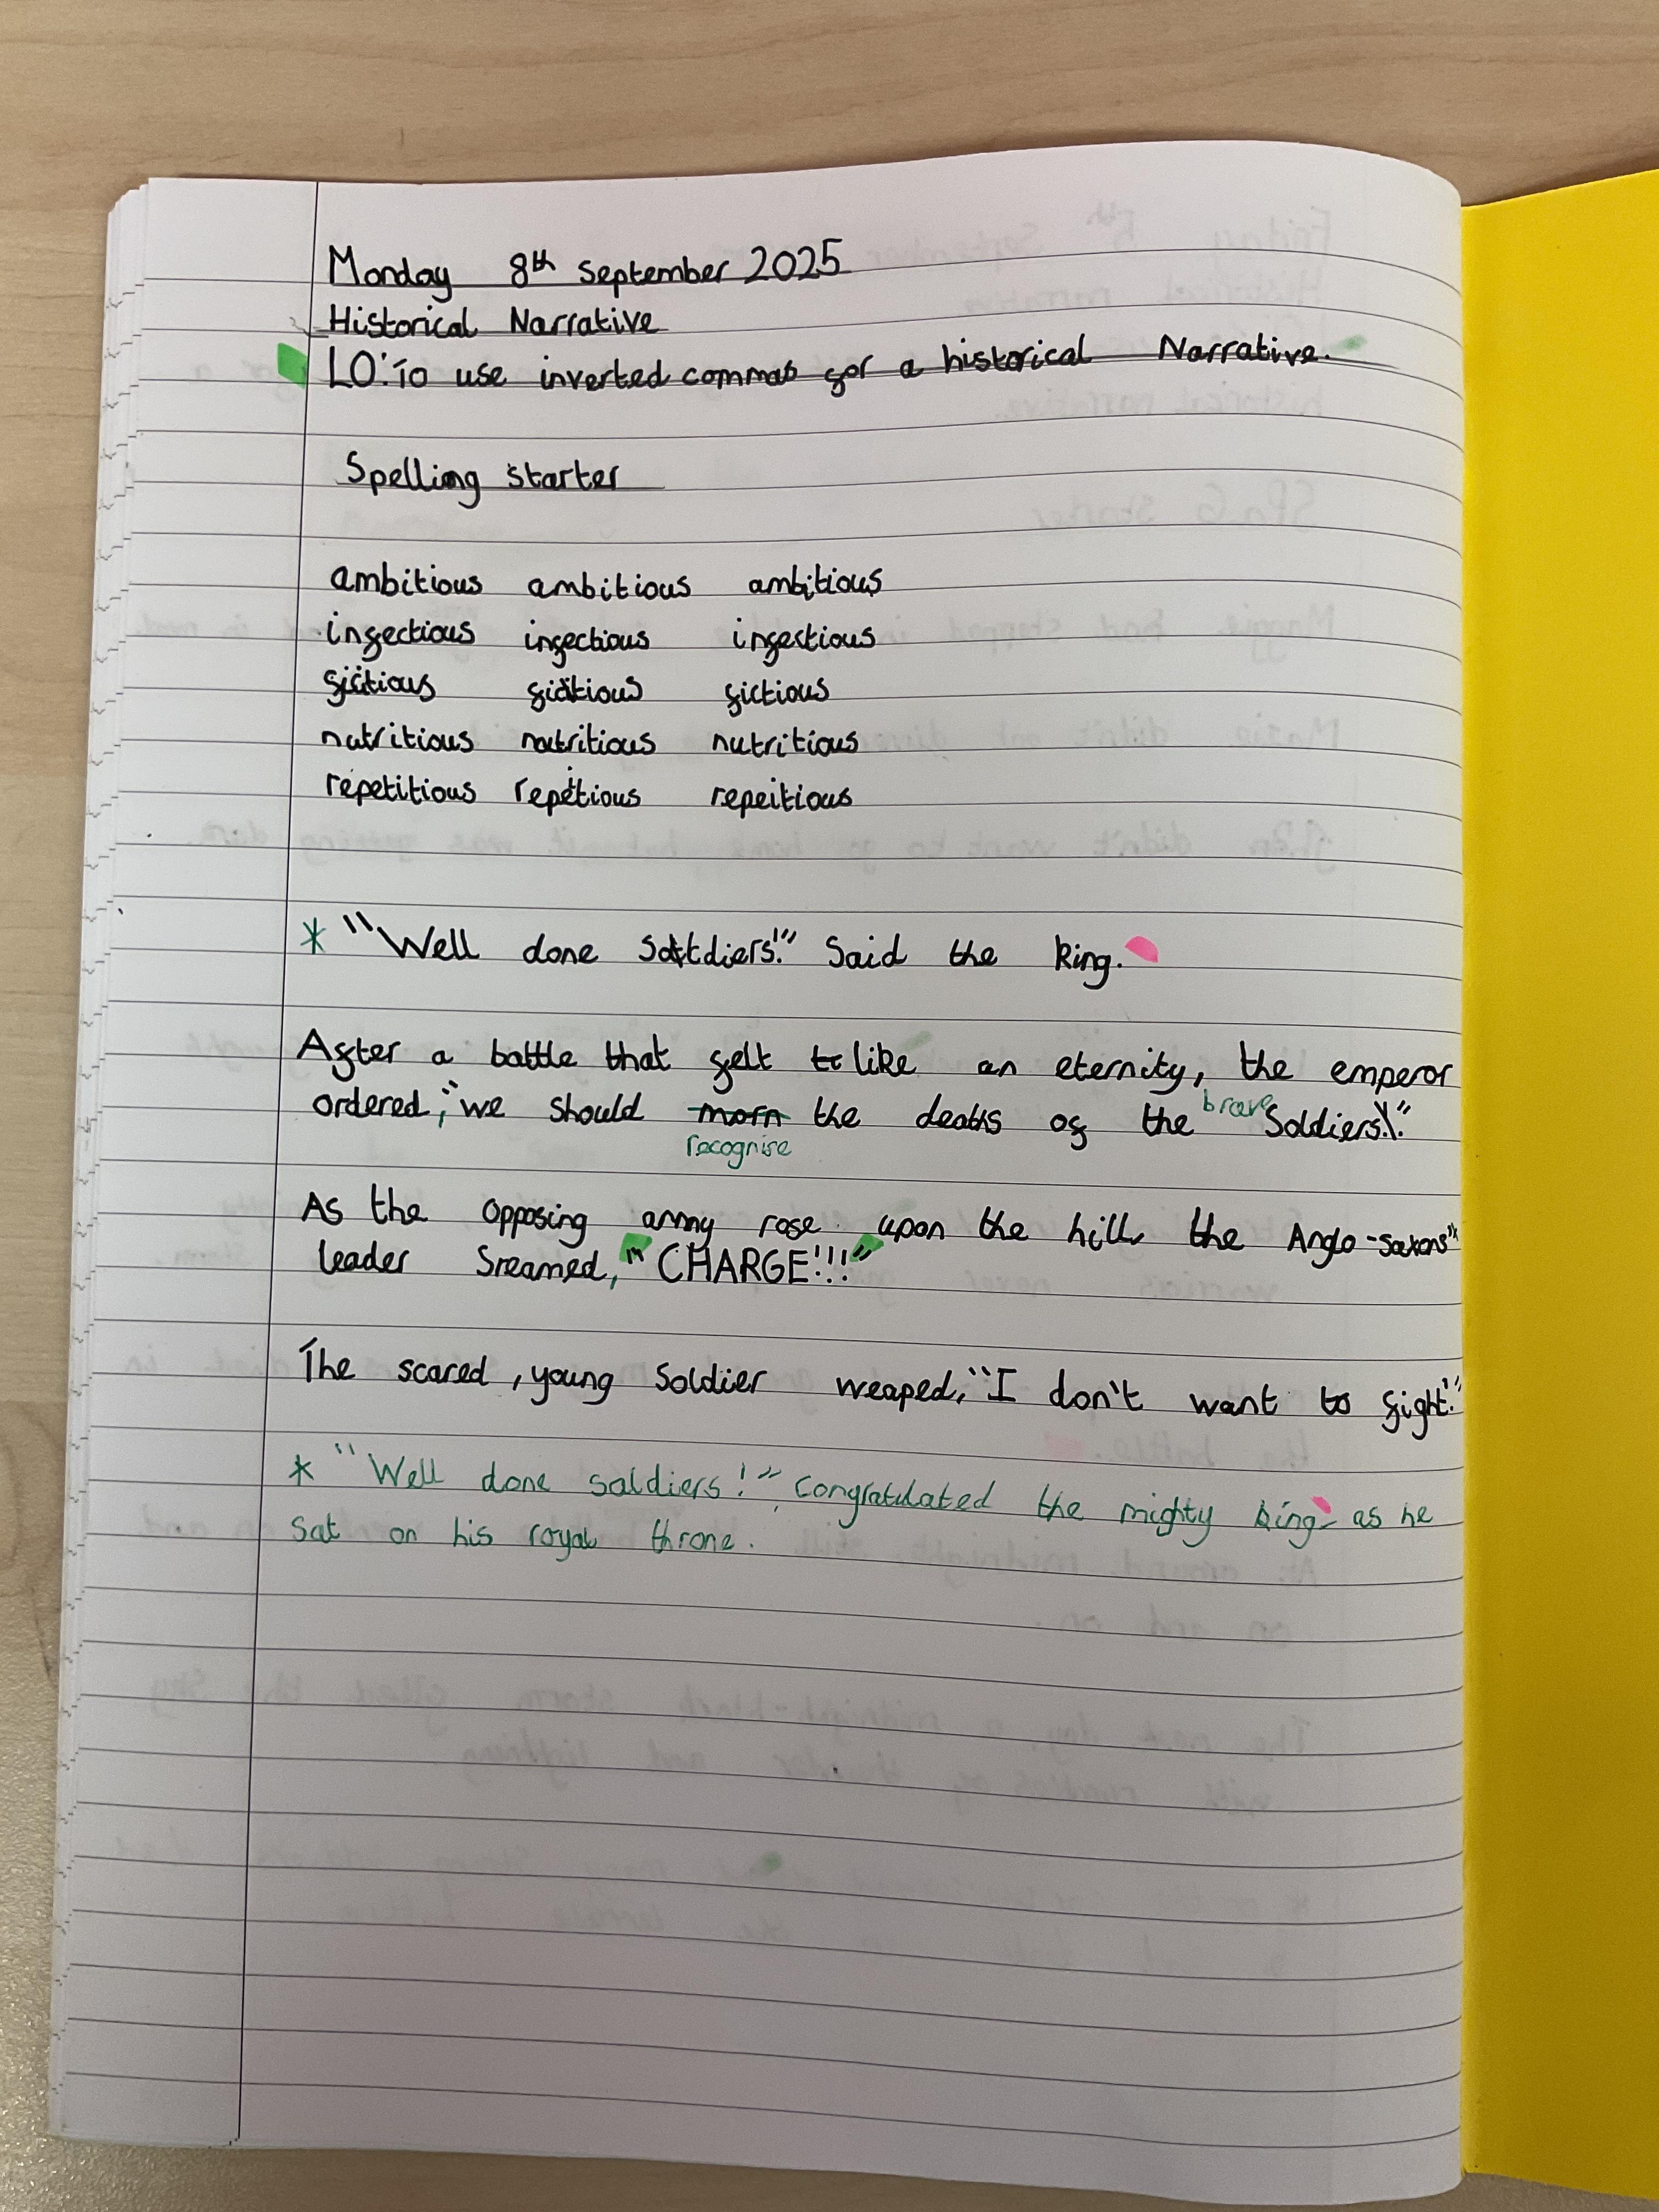 Monday 8th September 2025
Historical Narrative
LO: To use inverted commas for a historical Narrative.
Spelling starter
ambitious ambitious ambitious
infectious infectious infectious
fictious fictious fictious
nutritious nutritious nutritious
repetitious repetious repeitious
* "Well done soldiers!" Said the king.
After a battle that felt like an eternity, the emperor
ordered, "we should morn the deaths of the brave Soldiers!"
recognise
As the opposing army rose upon the hill, the Anglo-saxons"
leader Sreamed, "CHARGE!!!"
The scared, young Soldier weaped, "I don't want to fight."
* "Well done soldiers!" Congratulated the mighty king as he
sat on his royal throne.